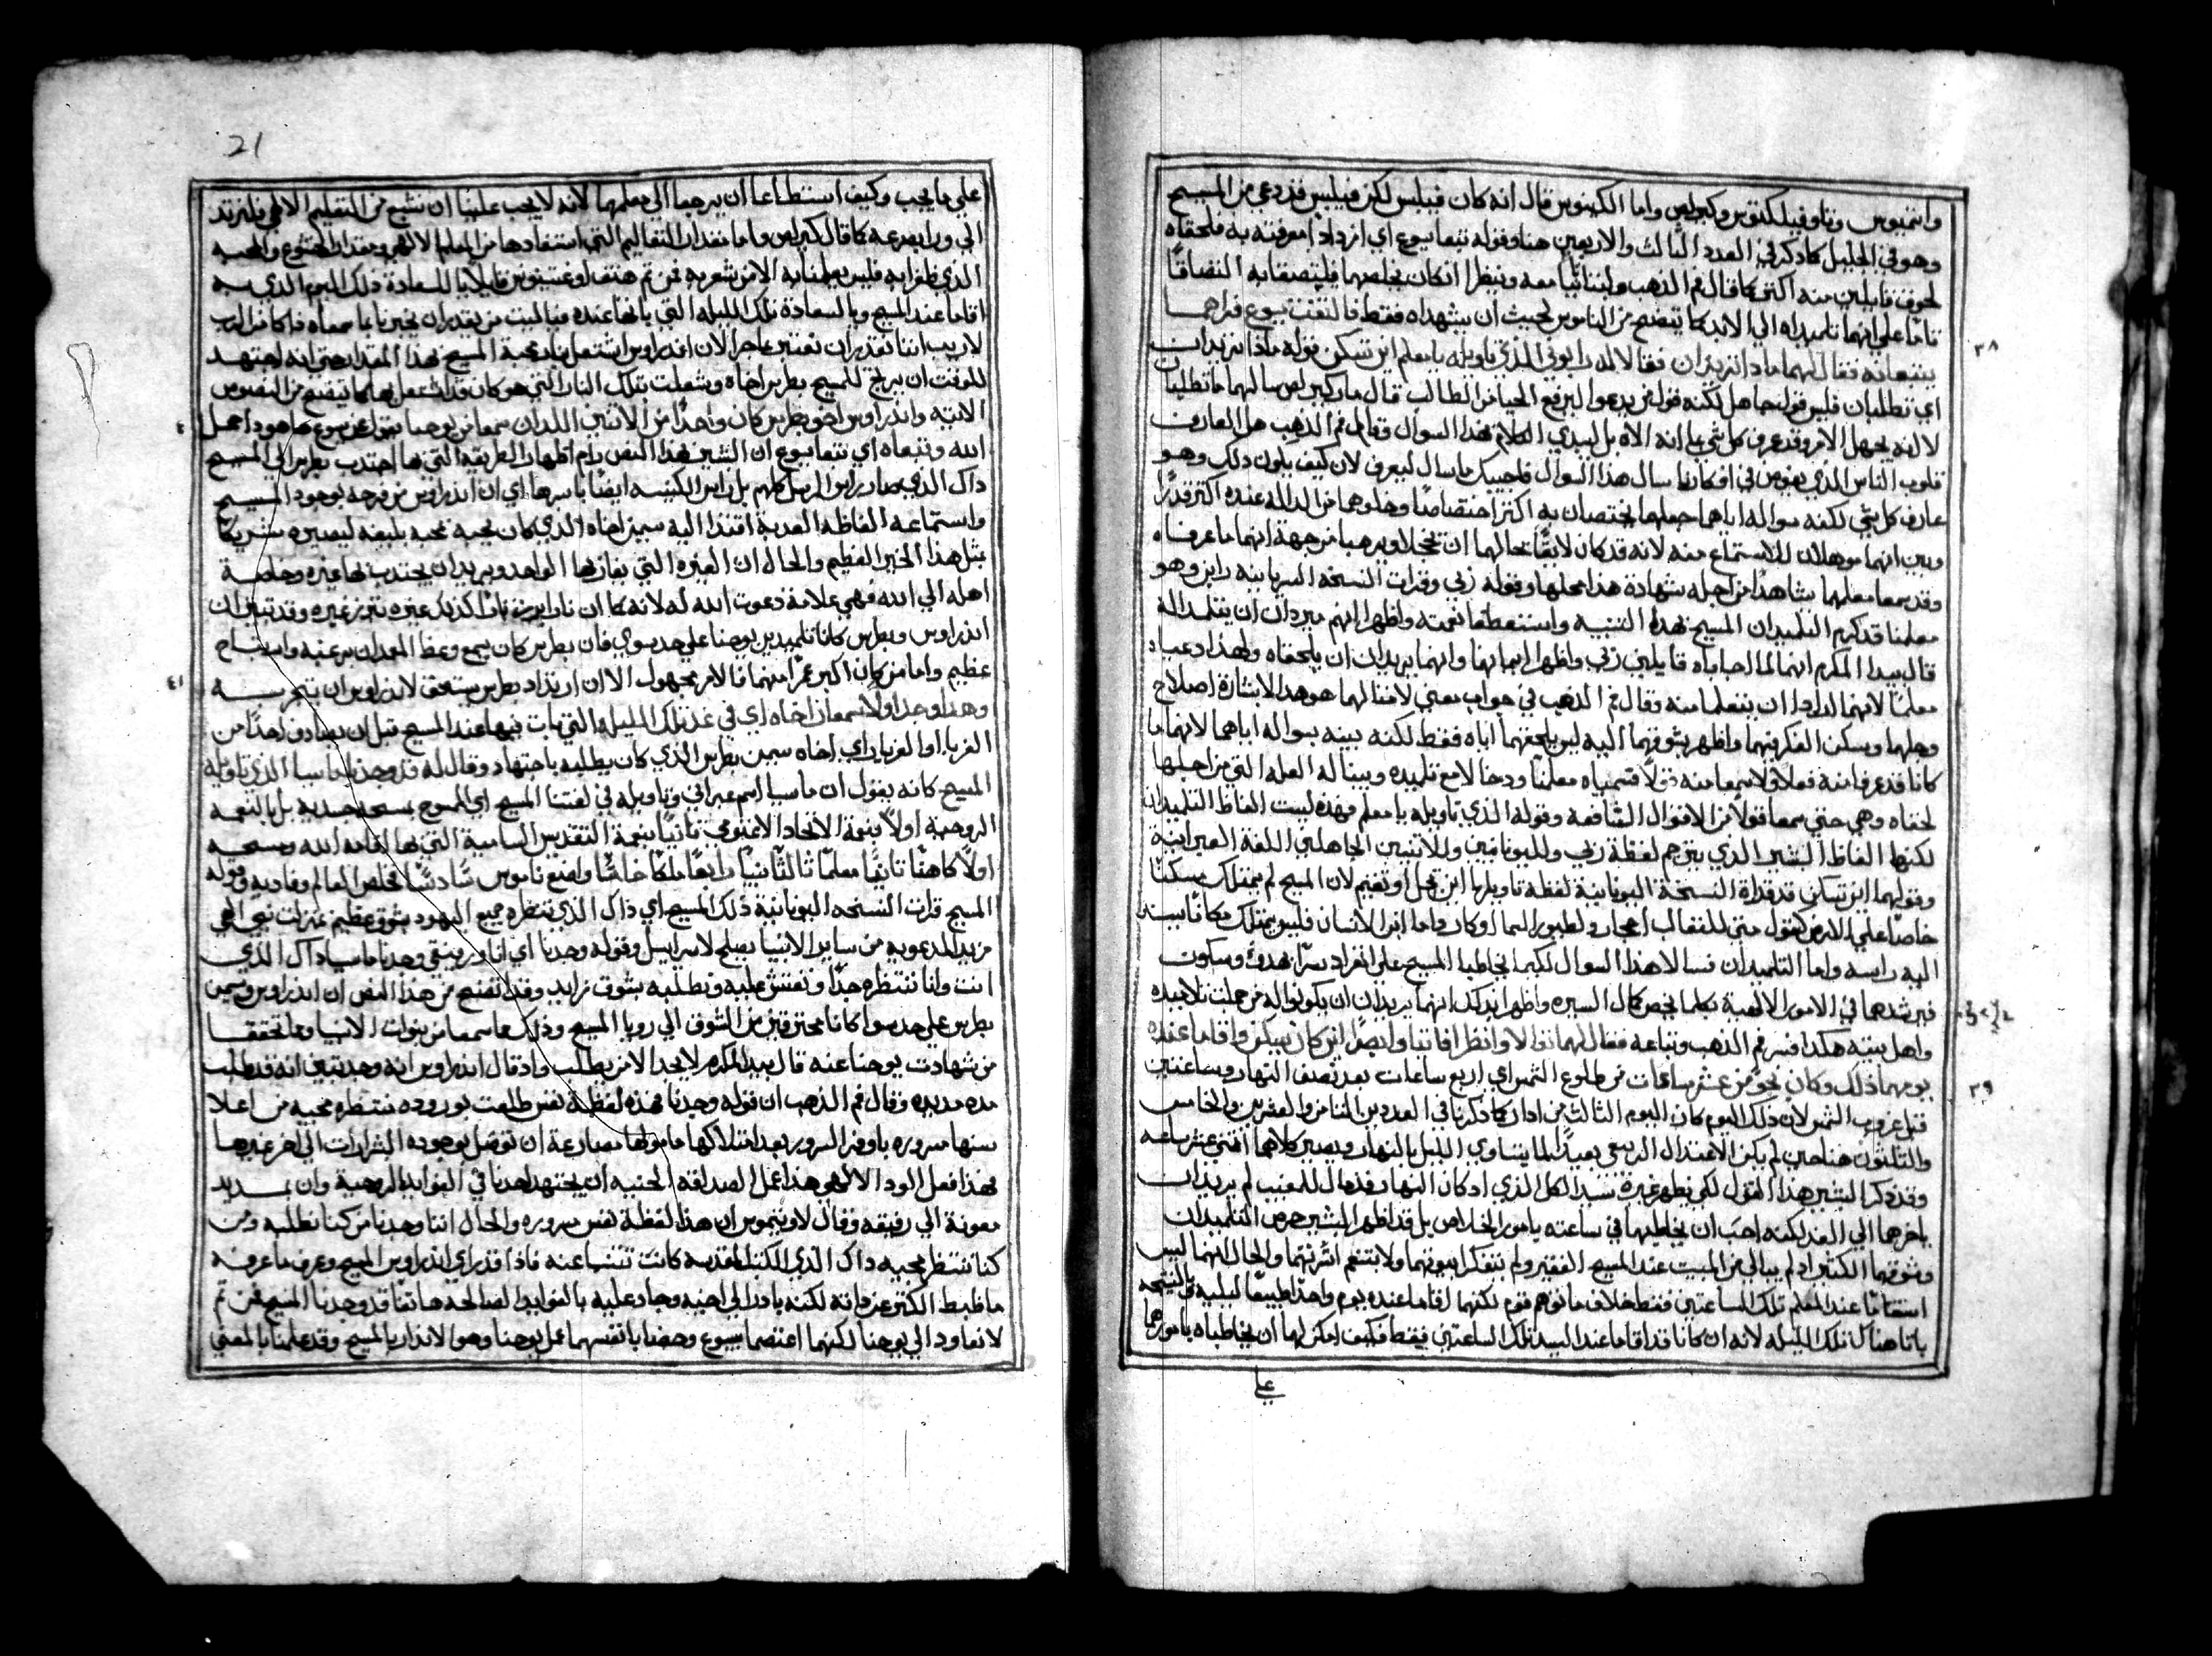 وانتيموس وتاوفيلكتوس وكيرلص واما الكينوس قال انه كان فيلبس لكن فيلبس قد دعي من المسيح
وهو في الجليل كما ذكر في العدد الثالث والاربعين هنا وقوله تبعا يسوع اي ازدادا معرفته به فلحقاه
لخوف قايلين منه اكثر كما قال فم الذهب ولبثا معه ونظرا ان كان يخلصهما فليتصقا به التصاقا
تاما على انهما تلميذاه الي الابد كما يتضح من الناموس لحيث ان يشهداه فقط فالتفت يسوع فراهما
٣٨
يتبعانه فقال لهما ماذا تريدان فقالا له رابوني الذي تاويله يا معلم اين تسكن قوله ماذا تريدان
اي تطلبان فليس قول جاهل لكنه قول من يدعو ليرفع الحيا من الطالب قال مار كيرلص سالهما ما تطلبان
لا لانه يجهل الامر وقد عرف كل شي بما انه الاه بل ليبدي الكلام بهذا السوال وقال فم الذهب هل العارف
قلوب الناس الذي يغوص في افكارنا سال هذا السوال فنجيبك ما سال ليعرف لان كيف يكون ذلك وهو
عارف كل شي لكنه بسواله اياهما جعلهما يختصان به اكثر اختصاصا وخلوهما من الدالة عنده اكثر قدرا
وبين انهما موهلان للاستماع منه لانه قد كان لايقا بحالهما ان يخجلا ويرهبا من جهة انهما ما عرفاه
وقد سمعا معلمهما شاهدا من اجله شهادة هذا محلها وقوله ربي وقرات النسخة السريانية رابن وهو
معلمنا قد كرم التلميذان المسيح بهذه التسمية واستعطفا نعمته واظهرا انهم يريدان ان يتلمذا له
قال بيدا المكرم انهما لما اجاباه قايلين ربي واظهرا ايمانهما وانهما يريدان ان يلحقاه ولهذا دعياه
معلما لانهما ارادا ان يتعلما منه وقال فم الذهب في جواب معنى لافتا لهما هوهذا الاشارة اصلاح
وجلهما ويسكن الفكر فيهما واظهر بشوقهما اليه ليس بلحقهما اياه فقط لكنه بينه بسواله اياهما لانهما ما
كانا قد عرفا منه فعلا ولا سمعا منه قولا فسمياه معلما ودخلا مع تلميذه وبينا له العلة التي من اجلها
لحقاه وهي حتى يسمعا قولا من الاقوال النافعة وقوله الذي تاويله يا معلم فهذه ليست الفاظ التلميذان
لكنها الفاظ البشير الذي يترجم لفظة ربي ولليونانيين وللاتنين الجاهلين اللغة العبرانية
وقولهما اين تسكن قد قراة النسخة اليونانية لفظة تاويلها اين تحل او تقيم لان المسيح لم يمتلك مسكنا
خاصا على الارض كقول متى للثعالب اجحار ولطيور السما اوكار واما ابن الانسان فليس يمتلك مكانا يسند
اليه راسه واما التلميذان فسالا هذا السوال لكيما يخاطبا المسيح على انفراد سرا بهدو وسكون
فيرشدهما في الامور الالهية بكلما يخص كمال السيرة واظهرا بذلك انهما يريدان ان يكونوا له من جملت تلاميذه
واهل بيته هكذا فسر فم الذهب وتباعه فقال لهما تعالا وانظرا فاتيا وابصرا اين كان يسكن واقاما عنده
٣٩
يومهما ذلك وكان نحو من عشر ساعات من طلوع الشمس اي اربع ساعات بعد نصف النهار وساعتين
قبل غروب الشمس لان ذلك اليوم كان اليوم الثالث من ادار كما ذكرنا في العددين الثامن والعشرين والخامس
والثلثون هنا حين لم يكن الاعتدال الربيعي بعيدا لما يتساوي الليل بالنهار ويصير كلاهما اثني عشر ساعة
وقد ذكر البشير هذا القول لكي يظهر غيرة سيد الكل الذي اذ كان النهار قد مال للمغيب لم يريد ان
ياخرهما الي الغد لكنه احب ان يخاطبهما في ساعته بامور الخلاص بل قد اظهر البشير حرص التلميذان
وشوقهما الكثير اذ لم يبالي من المبيت عند المسيح الفقير ولم يتفكرا بيوتهما ولا بتنعم اسرتهما والحال انهما ليس
استقاما عند المعلم تلك الساعتين فقط خلاف ما توهم قوم لكنهما اقاما عنده يوم واحدا طبيعيا ليليه بالنتيجة
باتا هناك تلك الليلة لانه ان كانا قد اقاما عند السيد تلك الساعتين فقط فكيف امكن لهما ان يخاطباه بامورهما
على
21
على ما يجب وكيف استطاعا ان يرجعا الي معلمهما لانه لا يجب علينا ان نشبع من التعليم الالهي فلنرتد
الي ورا بصرعة كما قال كيرلص واما مقدار التعاليم التي استفادها من المعلم الالهي ومقدار الخشوع والمحبة
الذي ظفرا به فليس يعلمنا به الا من شعر به فمن ثم هتف اوغستينوس قايلا يا للسعادة ذلك اليوم الذي به
اقاما عند المسيح ويا لسعادة تلك الليلة التي باتاها عنده فيا ليت من يقدر ان يخبرنا بما سمعاه فاكا من الرب
لا ريب اننا نقدير ان نفتش عما جرا لان اندراوس اشتعل بنار محبة المسيح بهذا المقدار حتى انه اجتهد
للوقت ان يربح للمسيح بطرس اخاه وشعلت تلك النار التي هو كان قد اشتعل بها كما يتضح من النصوص
الاتية واندراوس اخو بطرس كان واحدا من الاثنين اللذان سمعا من يوحنا يقول عن يسوع ها هوذا حمل
٤
الله وتبعاه اي تبعا يسوع ان البشير بهذا النص رام اظهار الطريقة التي بها اجتذب بطرس الي المسيح
ذاك الذي صار راس الرسل كلهم بل راس الكنيسة ايضا باسرها اي ان اندراوس من فرحه بوجود المسيح
واستماعه الفاظه العذبة اقتاد اليه سمين اخاه الذي كان يحبه محبة بليغة ليصيره شريكا
بمثل هذا الخير العظيم والحال ان الغيرة التي يغار بها الواحد ويريد ان يجتذب بها غيره وخاصة
اهله الي الله فهي علامة دعوت الله له لانه كما ان نارا يرث نارا كذلك غيره تثير غيره وقد تبين ان
اندراوس وبطرس كانا تلميذين يوحنا علي حد سوي فان بطرس كان يسمع وعظ المعمدان برغبة وابتهاج
عظيم واما من كان اكبر عمرا منهما فالامر مجهول الا ان ارتداد بطرس يستحق لاندراوس ان يتجربه
٤١
وهذا وجد اولا سمعان اخاه اي في غد تلك الليلة التي بات فيها عند المسيح قبل ان يصادف احدا من
الغربا او القربا راي اخاه سمين بطرس الذي كان يطلبه باجتهاد وقال له قد وجدنا ماسيا الذي تاويله
المسيح كانه يقول ان ماسيا اسم عبراني وتاويله في لغتنا المسيح اي الممسوح بمسحة جسدية بل بالنعمة
الروحية اولا بنعمة الاتحاد الاقنومي ثانيا بنعمة التقديس السامية التي بها اقامه الله ومسحه
اولا كاهنا ثانيا معلما ثالثا نبيا رابعا ملكا خامسا واضع ناموس سادسا مخلص العالم وفاديه وقوله
المسيح قرات النسخة اليونانية ذلك المسيح اي ذاك الذي تنتظره جميع اليهود بشوق عظيم بمنزلت نبي الهي
مزيد المدعوية من ساير الانبيا يصلح لاسراييل وقوله وجدنا اي انا ورفيقي وجدنا ماسيا ذاك الذي
انت وانا ننتظره جدا ونفتش عليه ونطلبه بشوق زايد وقد اتضح من هذا النص ان اندراوس وسمين
بطرس علي حد سوا كانا محترقين من الشوق الي رويا المسيح وذلك مما سمعا من نبوات الانبيا ومما تحققا
من شهادت يوحنا عنه قال بيدا المكرم لا يجد الا من يطلب واذ قال اندراوس انه وجد تبين انه قد طلب
مدة مديدة وقال فم الذهب ان قوله وجدنا فهذه لفظة نفس طلعت بوروده تنتظر مجيه من اعلا
سنها مسروره باوفر السرور بعد امتلاكها مامولها مصارعة ان توصل بوجوده البشارات الي اخر غيرها
فهذا فعل الود الالهي هذا عمل الصداقة الحبية ان يجتهد احدنا في الفوايد الروحية وان يمد يد
معونة الي رفيقه وقال لاونتيوس ان هذا لفظة نفس مسرورة والحال اننا وجدنا من كنا نطلبه ومن
كنا ننتظر مجيه ذاك الذي الكتب المقدسة كانت تتنبا عنه فاذا قد راي اندراوس المسيح وعرف ما عرفه
ما ظبط الكنز عن ذاته لكنه بادر الي اخيه وجاد عليه بالفوايد الصالحة هاتفا قد وجدنا المسيح فمن ثم
لا نعاود الي يوحنا لكنهما اعتصما بيسوع وحضيا بانفسهما عمل يوحنا وهو الانذار بالمسيح وقد علمنا بالمعنى